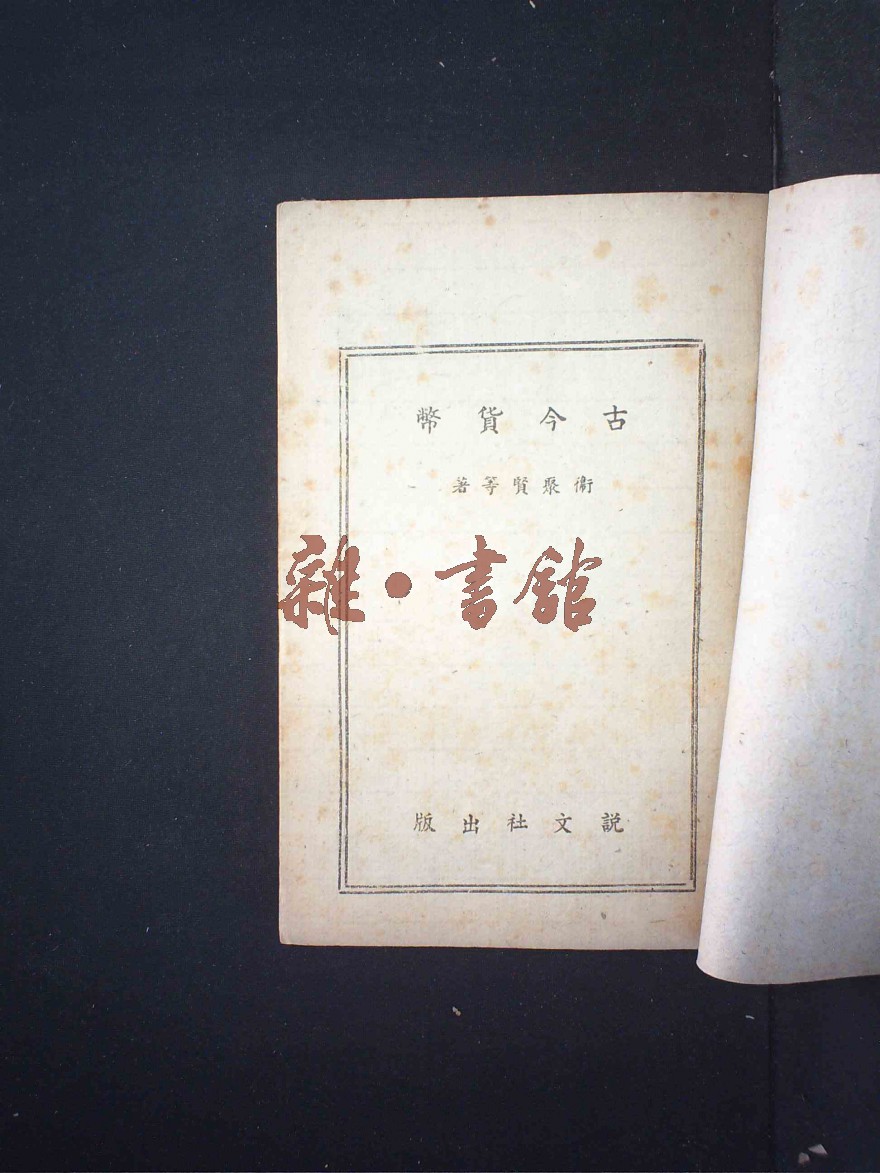 古今貨幣
衞聚賢等著
雜·書館
說文社出版